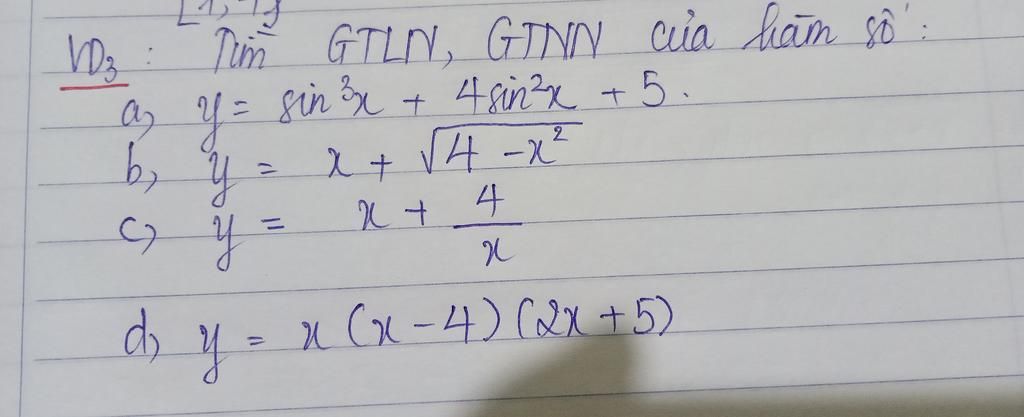 VD3 : Tìm GTLN, GTNN của hàm số :
a, y = sin³x + 4sin²x + 5.
b, y = x + √(4 - x²)
c, y = x + 4/x
d, y = x (x - 4) (2x + 5)